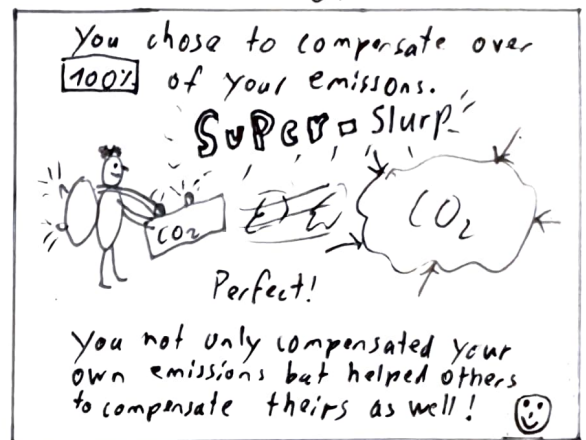 You chose to compensate over
100% of your emissions.
SuPer-Slurp
CO2
CO2
Perfect!
You not only compensated your
own emissions but helped others
to compensate theirs as well!